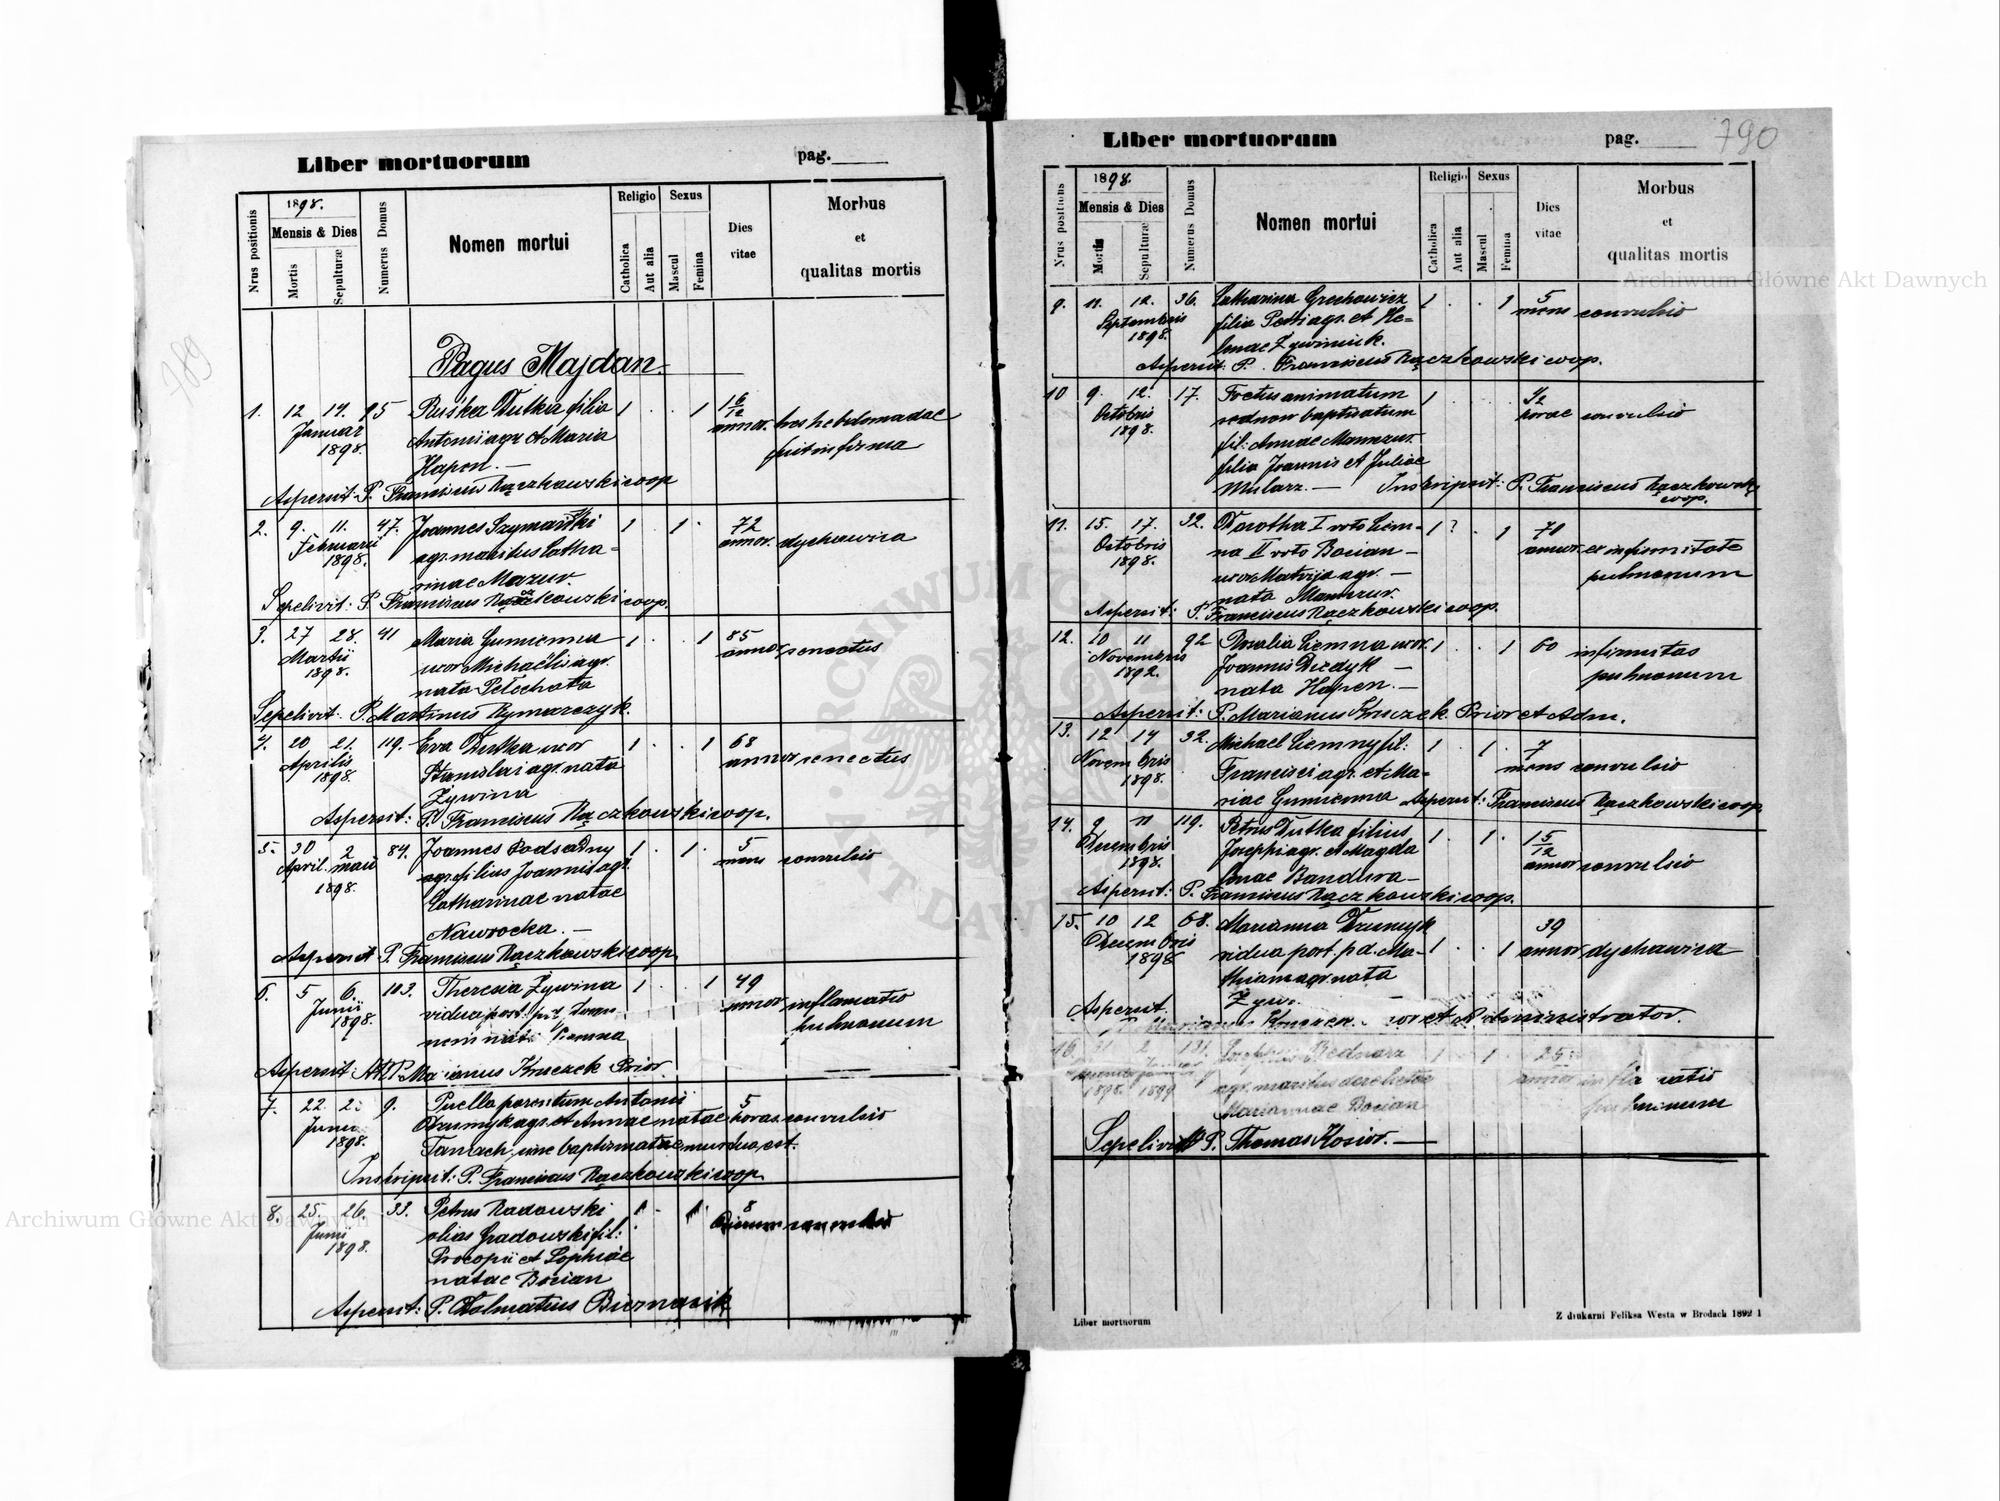 Liber mortuorum
pag.
789
1898.
Mensis & Dies
Nrus positionis
Mortis
Sepulturæ
Numerus Domus
Nomen mortui
Religio
Catholica
Aut alia
Sexus
Mascul
Femina
Dies
vitae
Morbus
et
qualitas mortis
Pagus Majdan.
1. 12 14. 95 Ruska Dutka filia 1 . . 1 1 6/12
Januar Antonii agr. et Maria annor. hebdomadae
1898. Hapen. — fuit infirma
Aspersit: P. Franciscus Rączkowski coop
2. 9. 11. 47. Joannes Szymański 1 . 1 . 72
Februarii agr. maritus Catha= annor. dychawica
1898. rinae Mazur.
Sepelivit: P. Franciscus Rączkowski coop.
3. 27 28. 41 Maria Gumienna 1 . . 1 85
Martii uxor Michaëlis agr. annor senectus
1898. nata Pełechata
Sepelivit: P. Martinus Rymarczyk.
4. 20 21. 119. Eva Dutka uxor 1 . . 1 68
Aprilis Stanislai agr. nata annor senectus
1898. Żywina
Aspersit: P. Franciscus Rączkowski coop.
5. 30 2 84. Joannes Podsadny 1 . 1 . 5
April. maii filius Joannis agr. mens convulsio
1898. Catharinae natae
Nawrocka. —
Aspersit P. Franciscus Rączkowski coop.
6. 5 6. 103. Theresia Żywina 1 . . 1 49
Junii vidua post annor inflamatio
1898. Ciemna pulmonum
Aspersit: P. Marianus Kruczek Prior.
7. 22. 9. Puella parentum Antonii 5
Junii Drumyk agr. et Annae natae horas. convulsio
1898. sine baptismate mortua est.
Inskripsit: P. Franciscus Rączkowski coop.
8. 25. 26. 33. Petrus Radowski 1 8
Junii alias Gradowski fil:
1898. Procopii et Sophiae
natae Bocian
Aspersit: P. Dalmatius Biernacik
Liber mortuorum
pag. 790
1898.
Mensis & Dies
Nrus positionis
Mortis
Sepulturæ
Numerus Domus
Nomen mortui
Religio
Catholica
Aut alia
Sexus
Mascul
Femina
Dies
vitae
Morbus
et
qualitas mortis
9. 11. 12. 36. Catharina Grechowicz 1 . . 1 5
Septembris filia Petri agr. et He= mens convulsio
1898. lenae Żywiniuk.
Aspersit: P. Franciscus Rączkowski coop.
10 9. 12. 17. Foetus animatum 1 . 1/2
Octobris sed non baptisatum horae convulsio
1898. fil: Annae Mamczur.
filia Joannis et Juliae
Mularz. — Inskripsit: P. Franciscus Rączkowski
coop.
11. 15. 17. 32. Dorotha I voto Ciem- 1 ? . 1 70
Octobris na II voto Bocian — annor. ex infirmitate
1898. uxor Matvija agr. — pulmonum
nata Mamczur.
Aspersit: P. Franciscus Rączkowski coop.
12. 10 11 92 Rosalia Ciemna uxor 1 . . 1 60 infirmitas
Novembris Joannis Dziedyk — pulmonum
1892. nata Hapen. —
Aspersit: P. Marianus Kruczek Prior et Adm.
13. 12 14 32. Michael Ciemny fil: 1 . 1 . 7
Novembris Francisci agr. et Ma= mens convulsio
1898. riae Gumienna Aspersit: Franciscus Rączkowski coop
14. 9 11 119. Petrus Dutka filius 1 . 1 . 1 5/12
Decembris Josephi agr. et Magda annor convulsio
1898. lenae Bandura —
Aspersit: P. Franciscus Rączkowski coop.
15. 10 12 68. Marianna Drumyk 39
Decembris vidua post. p. d. Ma- 1 . . 1 annor dychawica
1898 thiam agr. nata
Żyw.
Aspersit.
Marianus Kruczek. et Administrator.
16. 31 2 131. Josephus Bednarz 1 . 1 25
1898. 1899 agr. maritus annor
Mariannae Bocian pulmonum
Sepelivit P. Thomas Kosior. —
Liber mortuorum
Z drukarni Feliksa Westa w Brodach 1892 1
Archiwum Główne Akt Dawnych
Archiwum Główne Akt Dawnych